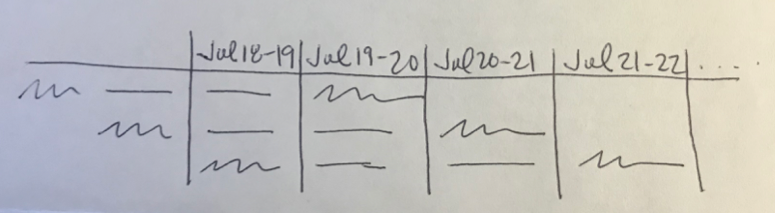 Jul 18-19 Jul 19-20 Jul 20-21 Jul 21-22 ....